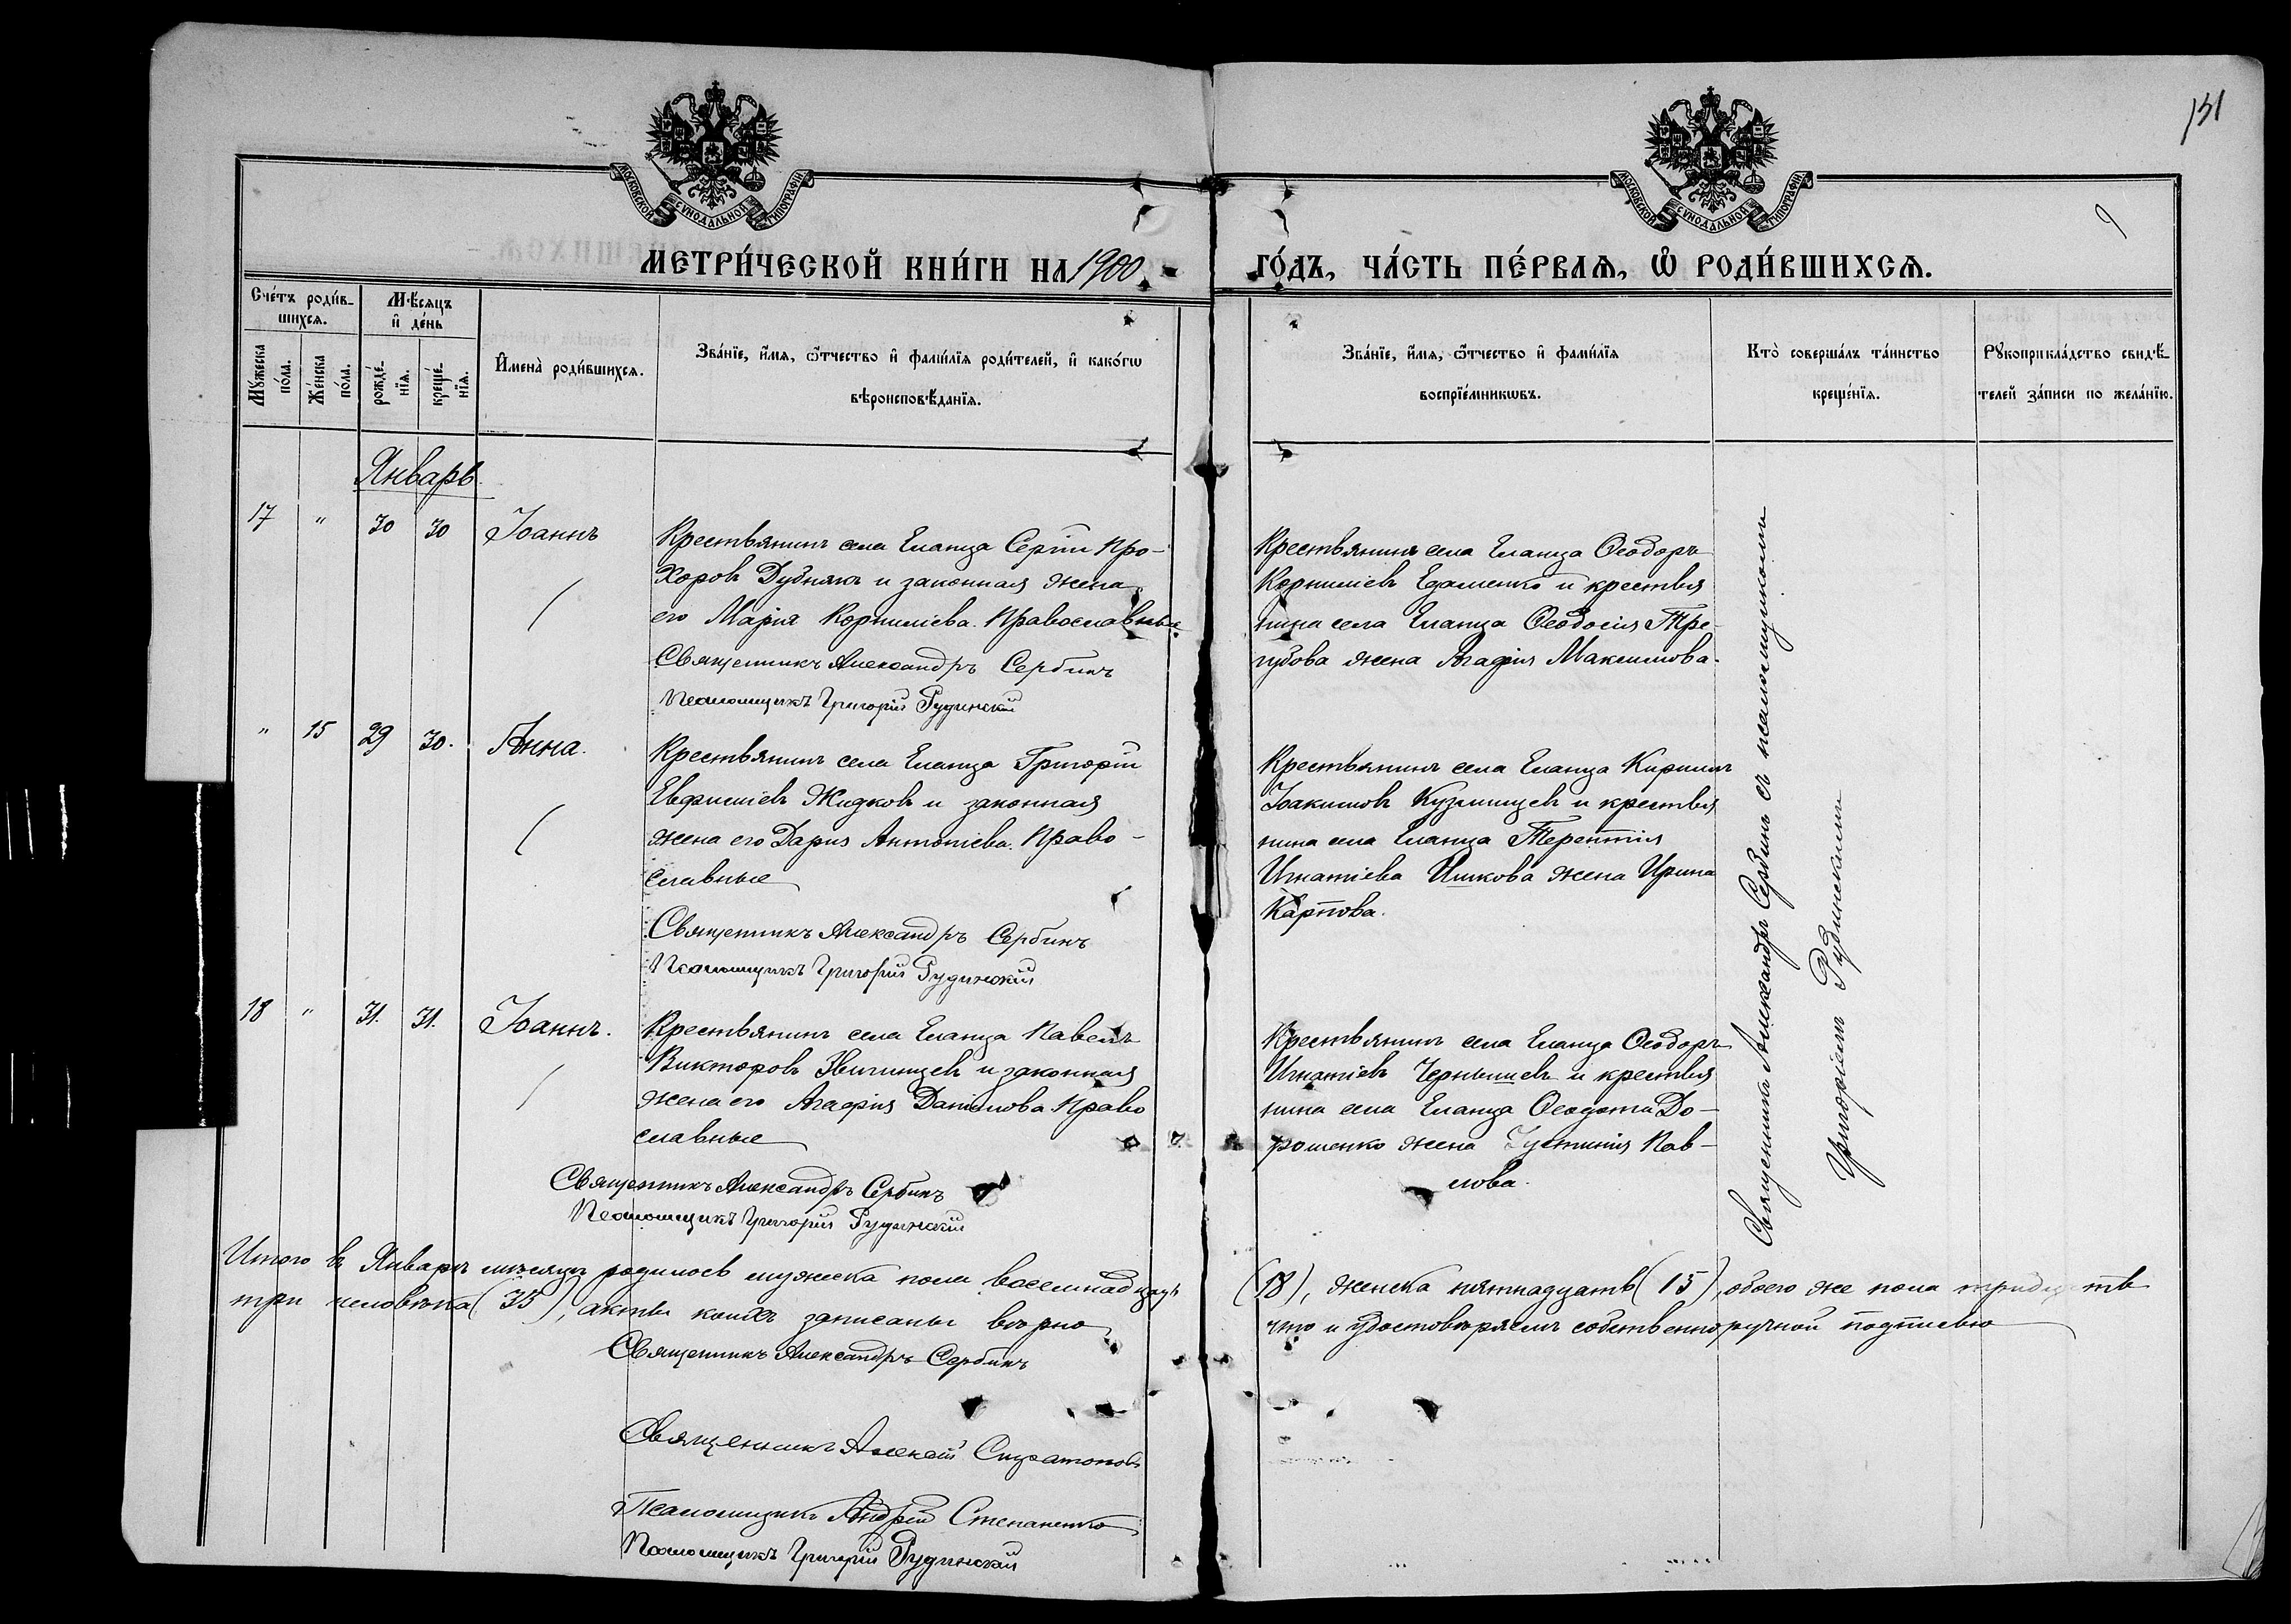 131
МОСКОВСКОЙ СѴНОДАЛЬНОЙ ТИПОГРАФІИ
МОСКОВСКОЙ СѴНОДАЛЬНОЙ ТИПОГРАФІИ
МЕТРИ́ЧЕСКОЙ КНИ́ГИ НА 1900
ГО́ДЪ, ЧА́СТЬ ПЕ́РВАѦ, Ѿ РОДИ́ВШИХСѦ.
Сче́тъ роди́в-
шихсѧ.
Мꙋ́жеска
по́ла.
Же́нска
по́ла.
Мѣ́сѧцъ
и҆ де́нь
рожде́-
нїѧ.
креще́-
нїѧ.
И҆мена̀ роди́вшихсѧ.
Зва́нїе, и҆́мѧ, ѻ҆́тчество и҆ фами́лїѧ роди́телей, и҆ како́гѡ
вѣроисповѣ́данїѧ.
Зва́нїе, и҆́мѧ, ѻ҆́тчество и҆ фами́лїѧ
воспрїе́мникѡвъ.
Кто̀ соверша́лъ та́инство
креще́нїѧ.
Рꙋкоприкла́дство свидѣ́-
телей за́писи по жела́нїю.
Январь
17 " 30 30 Іоаннъ
Крестьянинъ села Еланца Сергій Про-
хоровъ Дубнякъ и законная жена
его Марія Корниліева. Православные
Священникъ Александръ Сербинъ
Псаломщикъ Григорій Рудинскій
Крестьянинъ села Еланца Ѳеодоръ
Корниліевъ и крестья
нина села Еланца Ѳеодосія Тре-
губова жена Агафія Максимова.
" 15 29 30. Анна.
Крестьянинъ села Еланца Григорій
Евфиміевъ Жидковъ и законная
жена его Дарія Антоніева. Право-
славные
Священникъ Александръ Сербинъ
Псаломщикъ Григорій Рудинскій
Крестьянинъ села Еланца Кириллъ
Іоакимовъ Кузминцевъ и крестья
нина села Еланца Терентія
Игнатіева жена Ирина
Карпова.
18 " 31. 31. Іоаннъ.
Крестьянинъ села Еланца Павелъ
Викторовъ Звягинцевъ и законная
жена его Агафія Даніилова Право
славные
Священникъ Александръ Сербинъ
Псаломщикъ Григорій Рудинскій
Крестьянинъ села Еланца Ѳеодоръ
Игнатіевъ Чернышевъ и крестья
нина села Еланца Ѳеодота До-
рошенко жена Іустинія Пав-
лова.
Священникъ Александръ Сербинъ съ псаломщикомъ
Григоріемъ Рудинскимъ
Итого въ Январѣ мѣсяцѣ родилось мужеска пола восемнадцать (18), женска пятнадцать (15), обоего же пола тридцать
три человѣка (33), акты коихъ записаны вѣрно что и удостовѣряемъ собственноручной подписью
Священникъ Александръ Сербинъ
Священникъ Алексѣй
Псаломщикъ Андрей Степаненко
Псаломщикъ Григорій Рудинскій